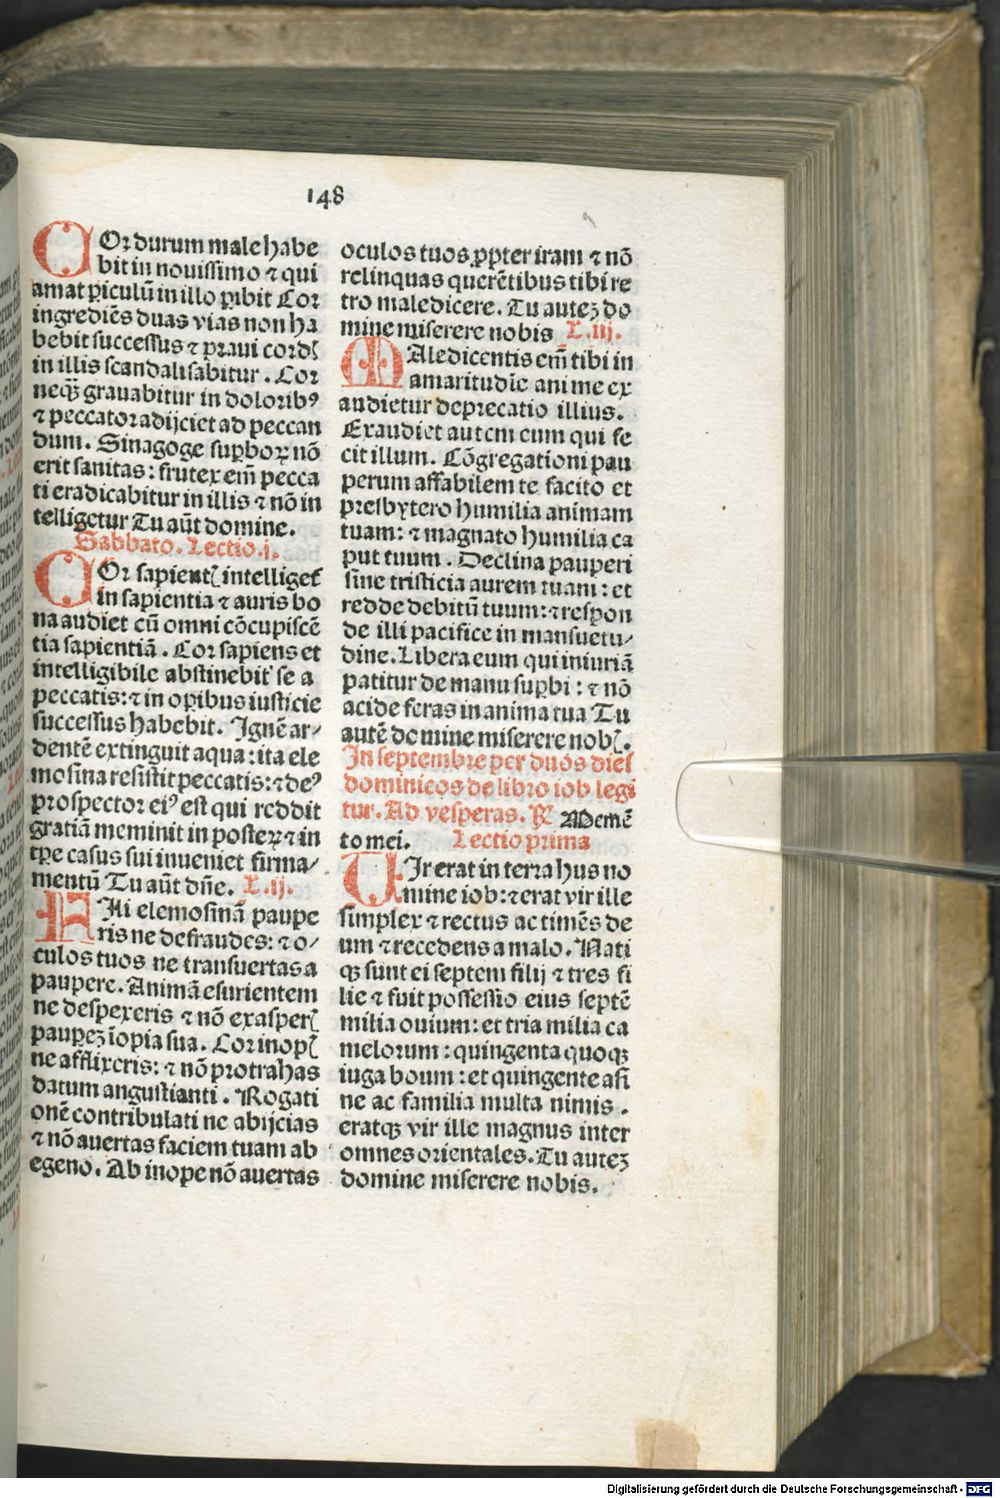 148
COꝛ durum male habe
bit in nouissimo ⁊ qui
amat ꝑiculũ in illo ꝑibit Coꝛ
ingrediẽs duas vias non ha
bebit successus ⁊ pꝛaui coꝛdꝭ
in illis scandalisabitur. Coꝛ
neqꝫ grauabitur in doloꝛibꝰ
⁊ peccatoꝛ adijciet ad peccan
dum. Sinagoge suꝑboꝝ nõ
erit sanitas: frutex em̃ pecca
ti eradicabitur in illis ⁊ nõ in
telligetur Tu aũt domine.
Sabbato. Lectio.i.
COꝛ sapientꝭ intelliget᷑
in sapientia ⁊ auris bo
na audiet cũ omni cõcupiscẽ
tia sapientiã. Coꝛ sapiens et
intelligibile abstinebit᷑ se a
peccatis: ⁊ in oꝑibus iusticie
successus habebit. Ignẽ ar⸗
dentẽ extinguit aqua: ita ele
mosina resistit peccatis: ⁊ deꝰ
pꝛospectoꝛ eiꝰ est qui reddit
gratiã meminit in posteꝝ ⁊ in
tꝑe casus sui inueniet firma⸗
mentũ Tu aũt dñe. L.ij.
FIli elemosinã paupe
ris ne defraudes: ⁊ o⸗
culos tuos ne transuertas a
paupere. Animã esurientem
ne despexeris ⁊ nõ exasperꝭ
pauꝑeꝫ ĩopia sua. Coꝛ inopꝭ
ne afflixeris: ⁊ nõ pꝛotrahas
datum angustianti. Rogati
onẽ contribulati ne abijcias
⁊ nõ auertas faciem tuam ab
egeno. Ab inope nõ auertas
oculos tuos ꝓpter iram ⁊ nõ
relinquas querẽtibus tibi re
tro maledicere. Tu auteꝫ do
mine miserere nobis L.iij.
MAledicentis em̃ tibi in
amaritudĩe anime ex
audietur depꝛecatio illius.
Exaudiet autem eum qui fe
cit illum. Cõgregationi pau
perum affabilem te facito et
pꝛesbytero humilia animam
tuam: ⁊ magnato humilia ca
put tuum. Declina pauperi
sine tristicia aurem tuam: et
redde debitũ tuum: ⁊ respon
de illi pacifice in mansuetu⸗
dine. Libera eum qui iniuriã
patitur de manu suꝑbi: ⁊ nõ
acide feras in anima tua Tu
autẽ domine miserere nobꝭ.
In septembꝛe per duos dies
dominicos de libꝛo iob legi
tur. Ad vesperas. ℟ Memẽ
to mei. Lectio pꝛima
UIr erat in terra hus no
mine iob: ⁊ erat vir ille
simplex ⁊ rectus ac timẽs de
um ⁊ recedens a malo. Nati
qꝫ sunt ei septem filij ⁊ tres fi
lie ⁊ fuit possessio eius septẽ
milia ouium: et tria milia ca
meloꝛum: quingenta quoqꝫ
iuga boum: et quingente asi
ne ac familia multa nimis.
eratqꝫ vir ille magnus inter
omnes oꝛientales. Tu auteꝫ
domine miserere nobis.
Digitalisierung gefördert durch die Deutsche Forschungsgemeinschaft - DFG